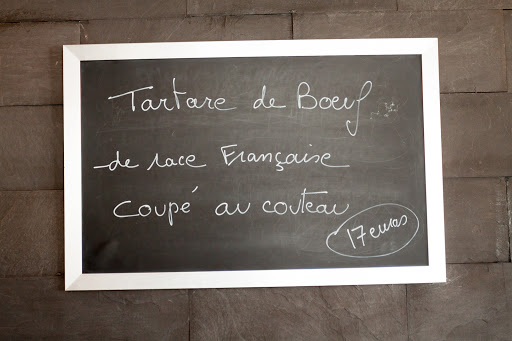 Tartare de Boeuf
de race Française
Coupé au couteau
17 euros